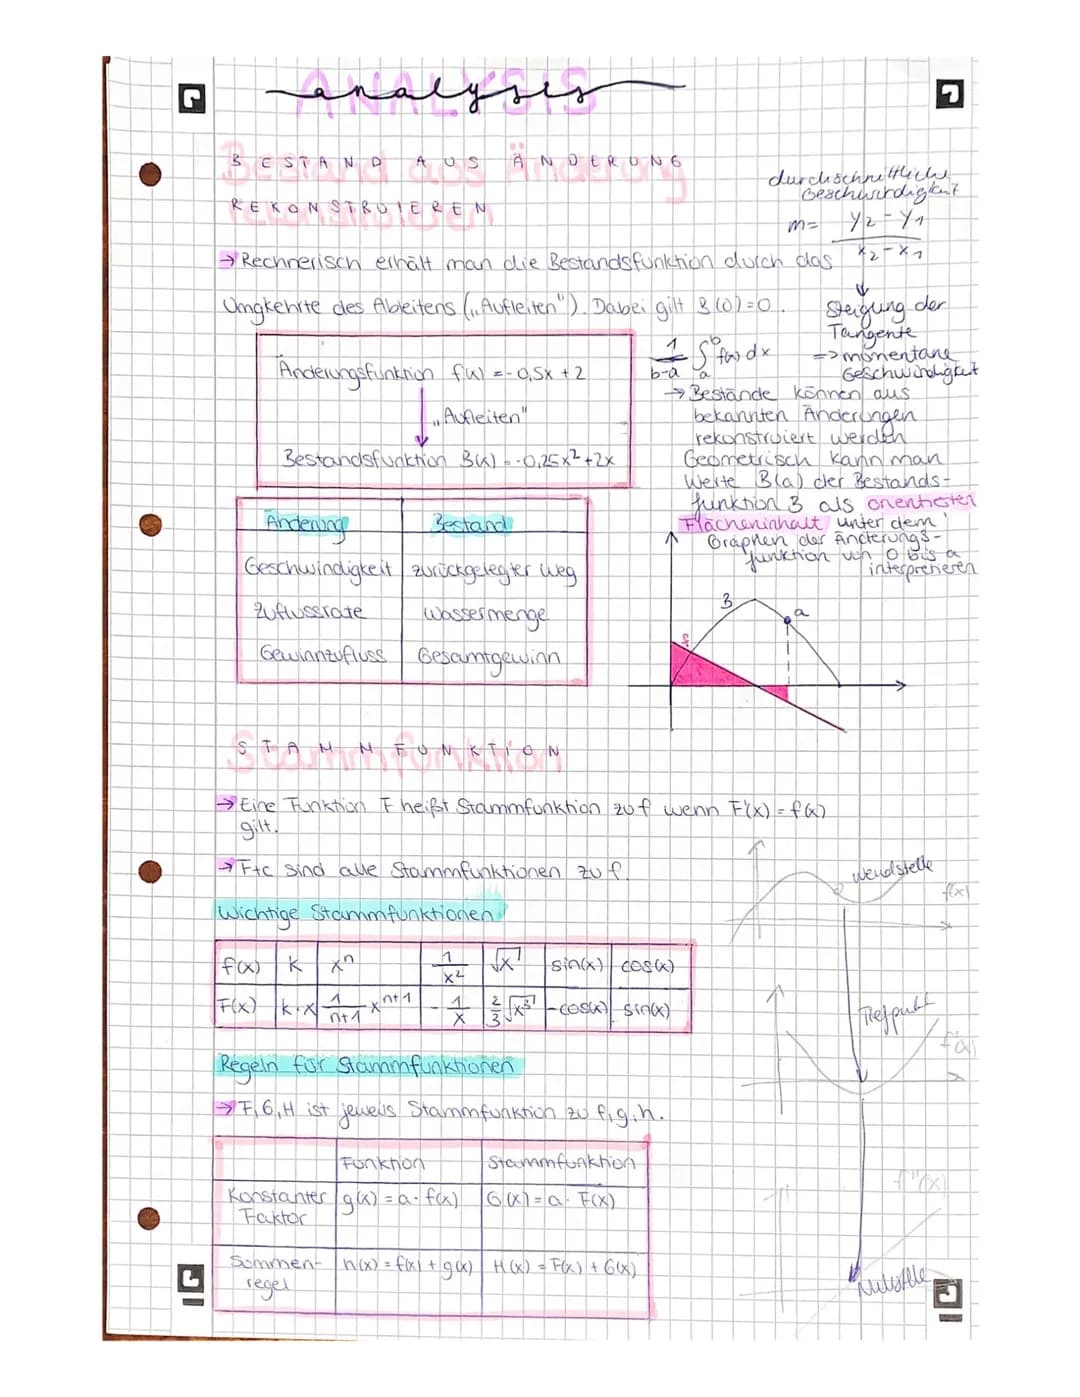 analysis
BESTAND AUS ÄNDERUNG
REKONSTRUIEREN
durchschnittliche
Geschwindigkeit
m = y₂ - y₁ / x₂ - x₁
→ Rechnerisch erhält man die Bestandsfunktion durch das
Umgekehrte des Ableitens („Aufleiten"). Dabei gilt B(0)=0.
Steigung der
Tangente
=> momentane
Geschwindigkeit
Änderungsfunktion f(x) = -0,5x + 2
„Aufleiten"
Bestandsfunktion B(x) = -0,25x² + 2x
1/(b-a) ∫ₐᵇ f(x) dx
→ Bestände können aus
bekannten Änderungen
rekonstruiert werden
Geometrisch kann man
Werte B(a) der Bestands-
funktion B als orientierten
Flächeninhalt unter dem
Graphen der Änderungs-
funktion von 0 bis a
interpretieren
Änderung | Bestand
Geschwindigkeit | zurückgelegter Weg
Zuflussrate | Wassermenge
Gewinnzufluss | Gesamtgewinn
B
a
f
STAMMFUNKTION
→ Eine Funktion F heißt Stammfunktion zu f wenn F'(x) = f(x)
gilt.
→ F+c sind alle Stammfunktionen zu f.
Wichtige Stammfunktionen
f(x) | k | xⁿ | 1/x² | √x | sin(x) | cos(x)
F(x) | k·x | 1/(n+1) xⁿ⁺¹ | - 1/x | 2/3 √x³ | -cos(x) | sin(x)
Regeln für Stammfunktionen
→ F, G, H ist jeweils Stammfunktion zu f, g, h.
Funktion | Stammfunktion
Konstanter Faktor | g(x) = a · f(x) | G(x) = a · F(x)
Summen-regel | h(x) = f(x) + g(x) | H(x) = F(x) + G(x)
Wendstelle
f(x)
Tiefpunkt
f'(x)
f''(x)
Nullstelle